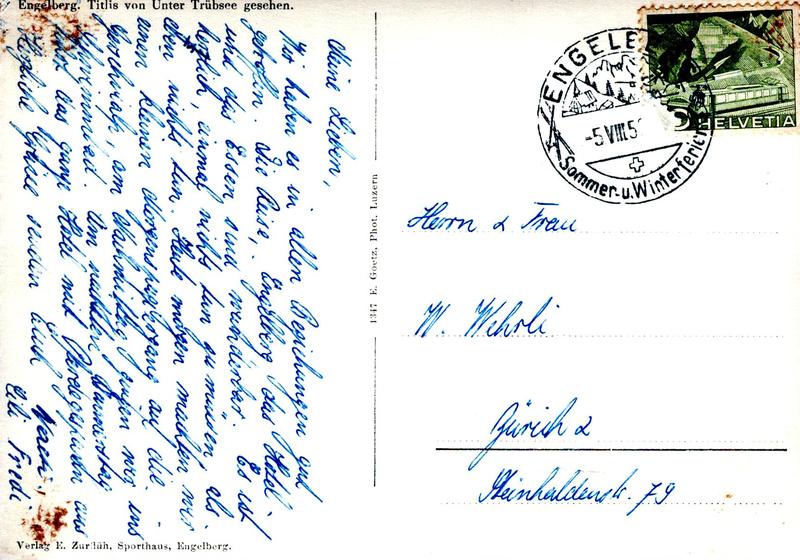 Engelberg. Titlis von Unter Trübsee gesehen.
Meine Lieben,
Wir haben es in allen Beziehungen gut
getroffen. Die Reise, Engelberg, das Hotel
und das Essen sind wunderbar. Es ist
herrlich, einmal nichts tun zu müssen als
eben nichts tun. Heute morgen machten wir
einen kleinen Morgenspaziergang auf die
am Nachmittag gingen wir ins
Schwimmbad. Am nächsten Donnerstag
das ganze Hotel mit Pferdegespann aus
Herzliche Grüsse senden Euch
Fredi
1347 E. Goetz, Phot. Luzern
Verlag E. Zurflüh, Sporthaus, Engelberg.
ENGELBE
-5.VIII.5
Sommer- u. Winterferien
5 HELVETIA
Herrn & Frau
W. Wehrli
Zürich 2
Steinhaldenstr. 79